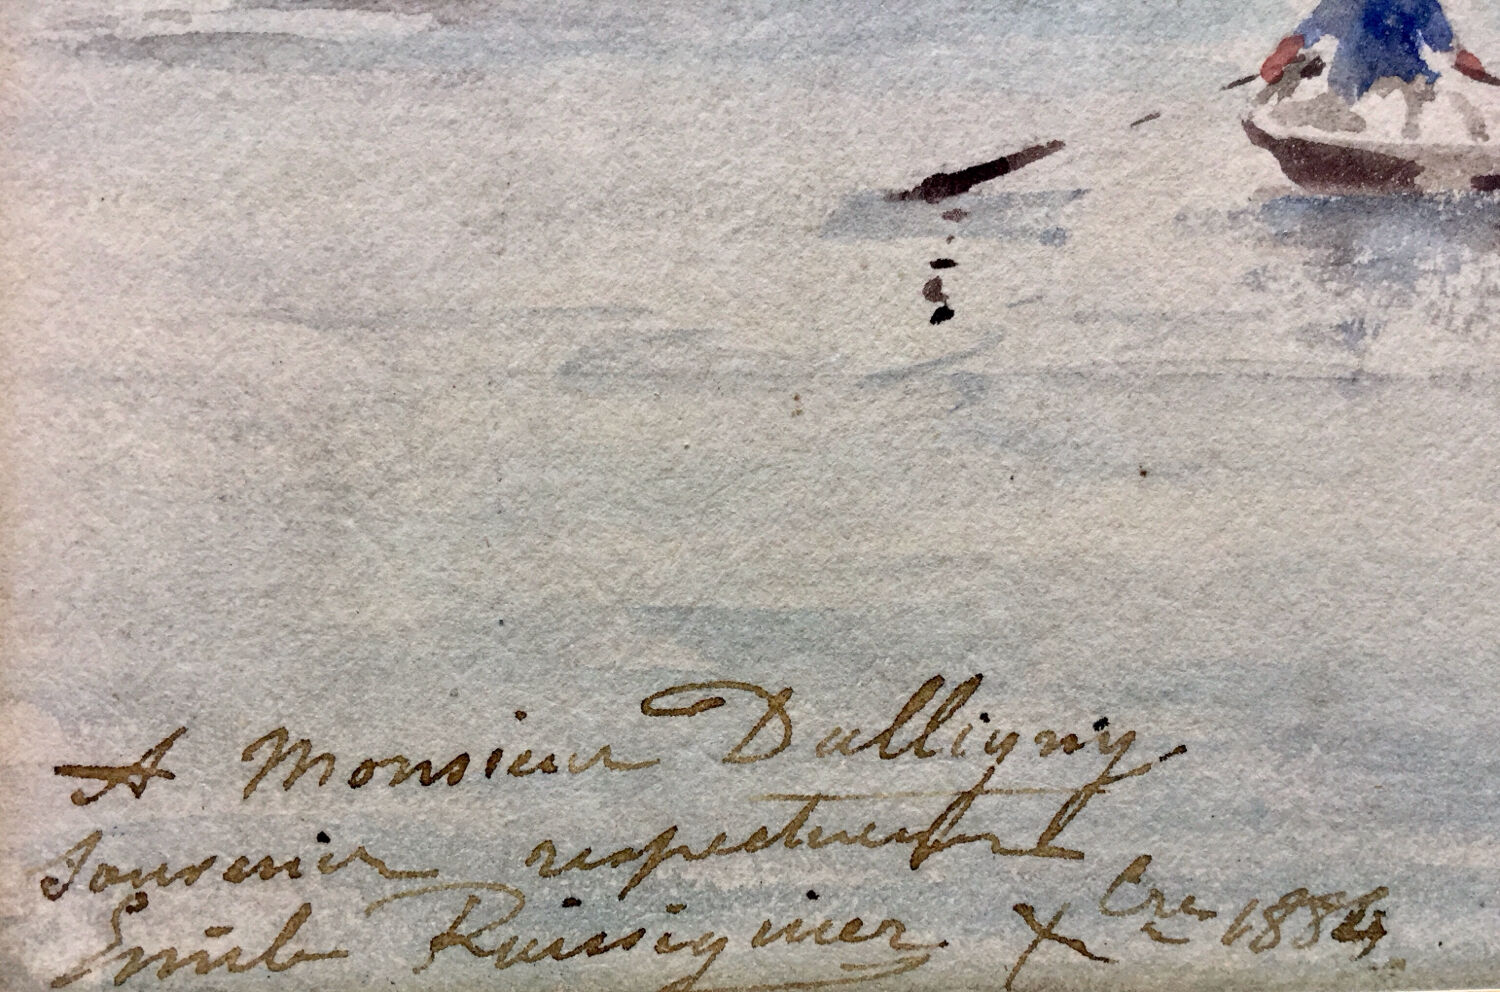 A Monsieur Dalligny
Souvenir respectueux
Emile Rui
X bre 1884